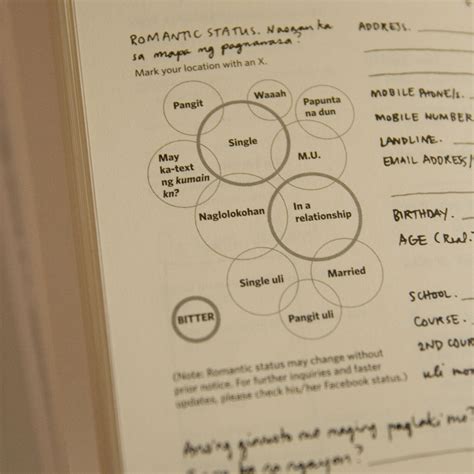 ROMANTIC STATUS. Nasaan ka
sa mapa ng pagnanasa?
Mark your location with an X.
Pangit
Waaah
Papunta
na dun
Single
May
ka-text
ng kumain
kn?
M.U.
Naglolokohan
In a
relationship
Single uli
Married
Pangit uli
BITTER
(Note: Romantic status may change without
prior notice. For further inquiries and faster
updates, please check his/her Facebook status.)
Anong ginusto mo maging paglaki mo?
ngayon?
ADDRESS.
MOBILE PHONE/S.
MOBILE NUMBER
LANDLINE.
EMAIL ADDRESS/
BIRTHDAY.
AGE (Real.
SCHOOL.
COURSE.
2ND COUR
uli